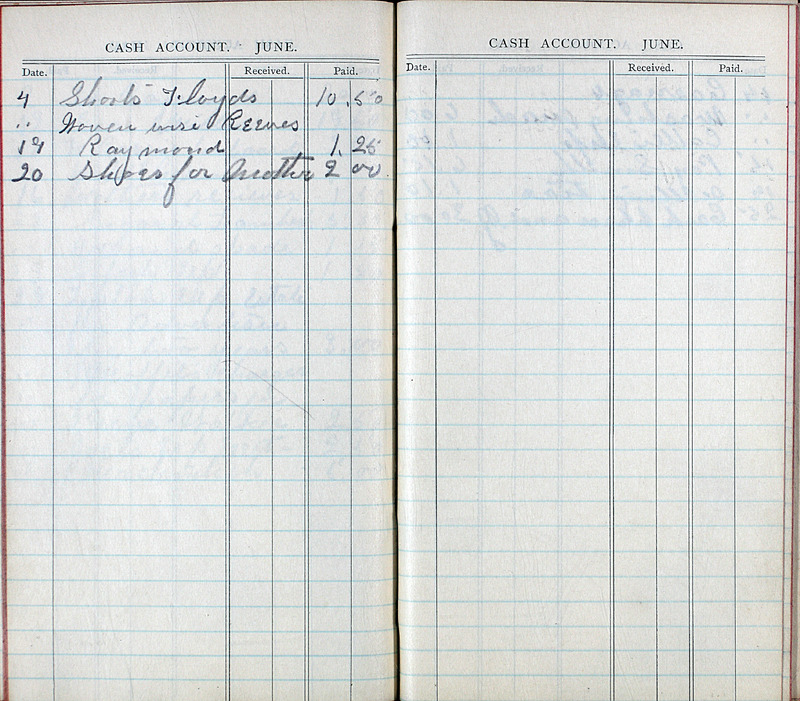 CASH ACCOUNT. JUNE.
Date. Received. Paid.
4 Shoots Floyds 10.50
" Woven wire Reeves
19 Raymond 1.25
20 Shoes for Mother 2 00
CASH ACCOUNT. JUNE.
Date. Received. Paid.